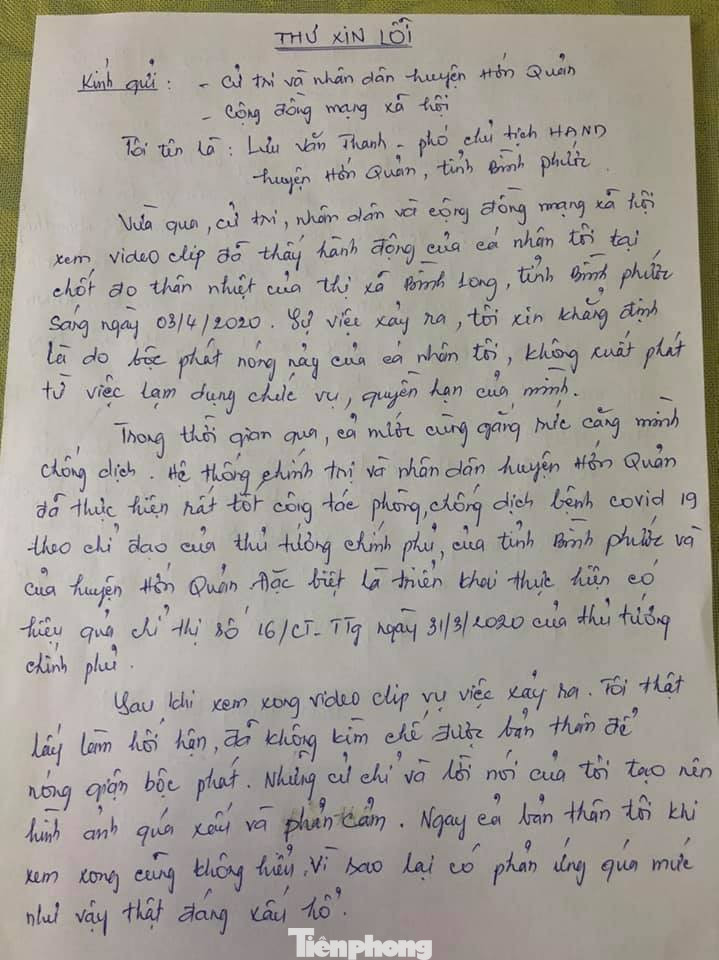 THƯ XIN LỖI
Kính gửi : - Cử tri và nhân dân huyện Hớn Quản
- Cộng đồng mạng xã hội
Tôi tên là : Lưu Văn Thanh - phó chủ tịch HĐND
huyện Hớn Quản, tỉnh Bình phước.
Vừa qua, cử tri, nhân dân và cộng đồng mạng xã hội
xem video clip đã thấy hành động của cá nhân tôi tại
chốt đo thân nhiệt của thị xã Bình Long, tỉnh Bình phước
sáng ngày 03/4/2020. Sự việc xảy ra, tôi xin khẳng định
là do bộc phát nóng nảy của cá nhân tôi, không xuất phát
từ việc lạm dụng chức vụ, quyền hạn của mình.
Trong thời gian qua, cả nước cùng gắng sức căng mình
chống dịch. Hệ thống chính trị và nhân dân huyện Hớn Quản
đã thực hiện rất tốt công tác phòng, chống dịch bệnh covid 19
theo chỉ đạo của thủ tướng chính phủ, của tỉnh Bình phước và
của huyện Hớn Quản. Đặc biệt là triển khai thực hiện có
hiệu quả chỉ thị số 16/CT-TTg ngày 31/3/2020 của thủ tướng
chính phủ.
Sau khi xem xong video clip vụ việc xảy ra. Tôi thật
lấy làm hối hận, đã không kìm chế được bản thân để
nóng giận bộc phát. Những cử chỉ và lời nói của tôi tạo nên
hình ảnh quá xấu và phản cảm. Ngay cả bản thân tôi khi
xem xong cũng không hiểu, vì sao lại có phản ứng quá mức
như vậy thật đáng xấu hổ.
Tiênphong